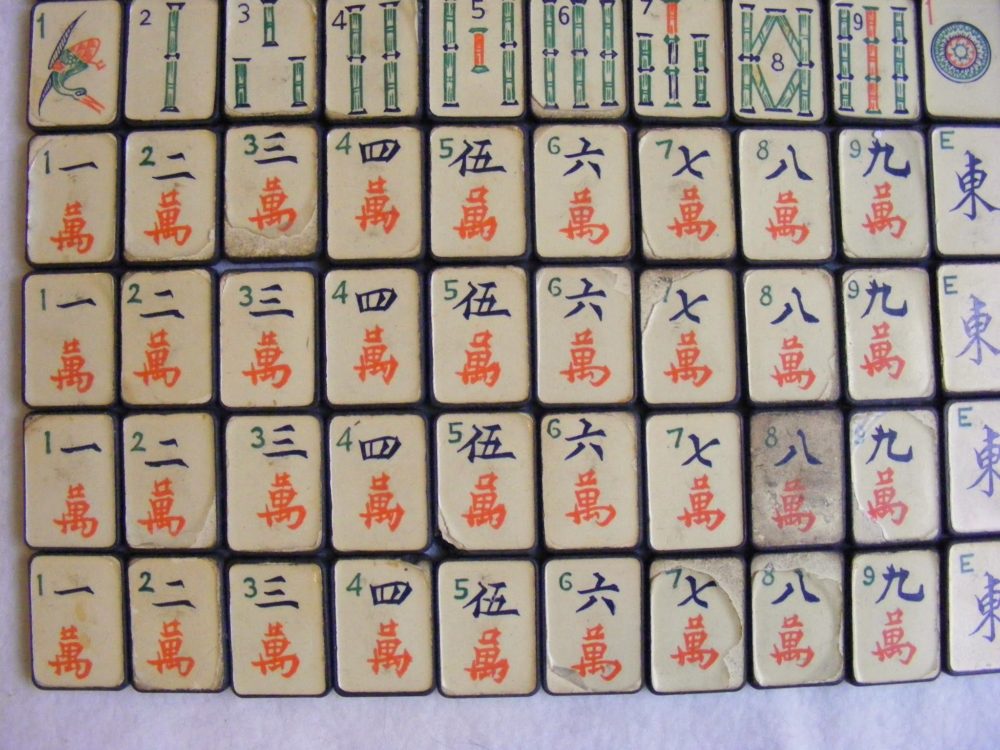 1 2 3 4 5 6 7 8 9 1
1 一 2 二 3 三 4 四 5 伍 6 六 7 七 8 八 9 九 E 東
萬 萬 萬 萬 萬 萬 萬 萬 萬
1 一 2 二 3 三 4 四 5 伍 6 六 7 七 8 八 9 九 E 東
萬 萬 萬 萬 萬 萬 萬 萬 萬
1 一 2 二 3 三 4 四 5 伍 6 六 7 七 8 八 9 九 E 東
萬 萬 萬 萬 萬 萬 萬 萬 萬
1 一 2 二 3 三 4 四 5 伍 6 六 7 七 8 八 9 九 E 東
萬 萬 萬 萬 萬 萬 萬 萬 萬